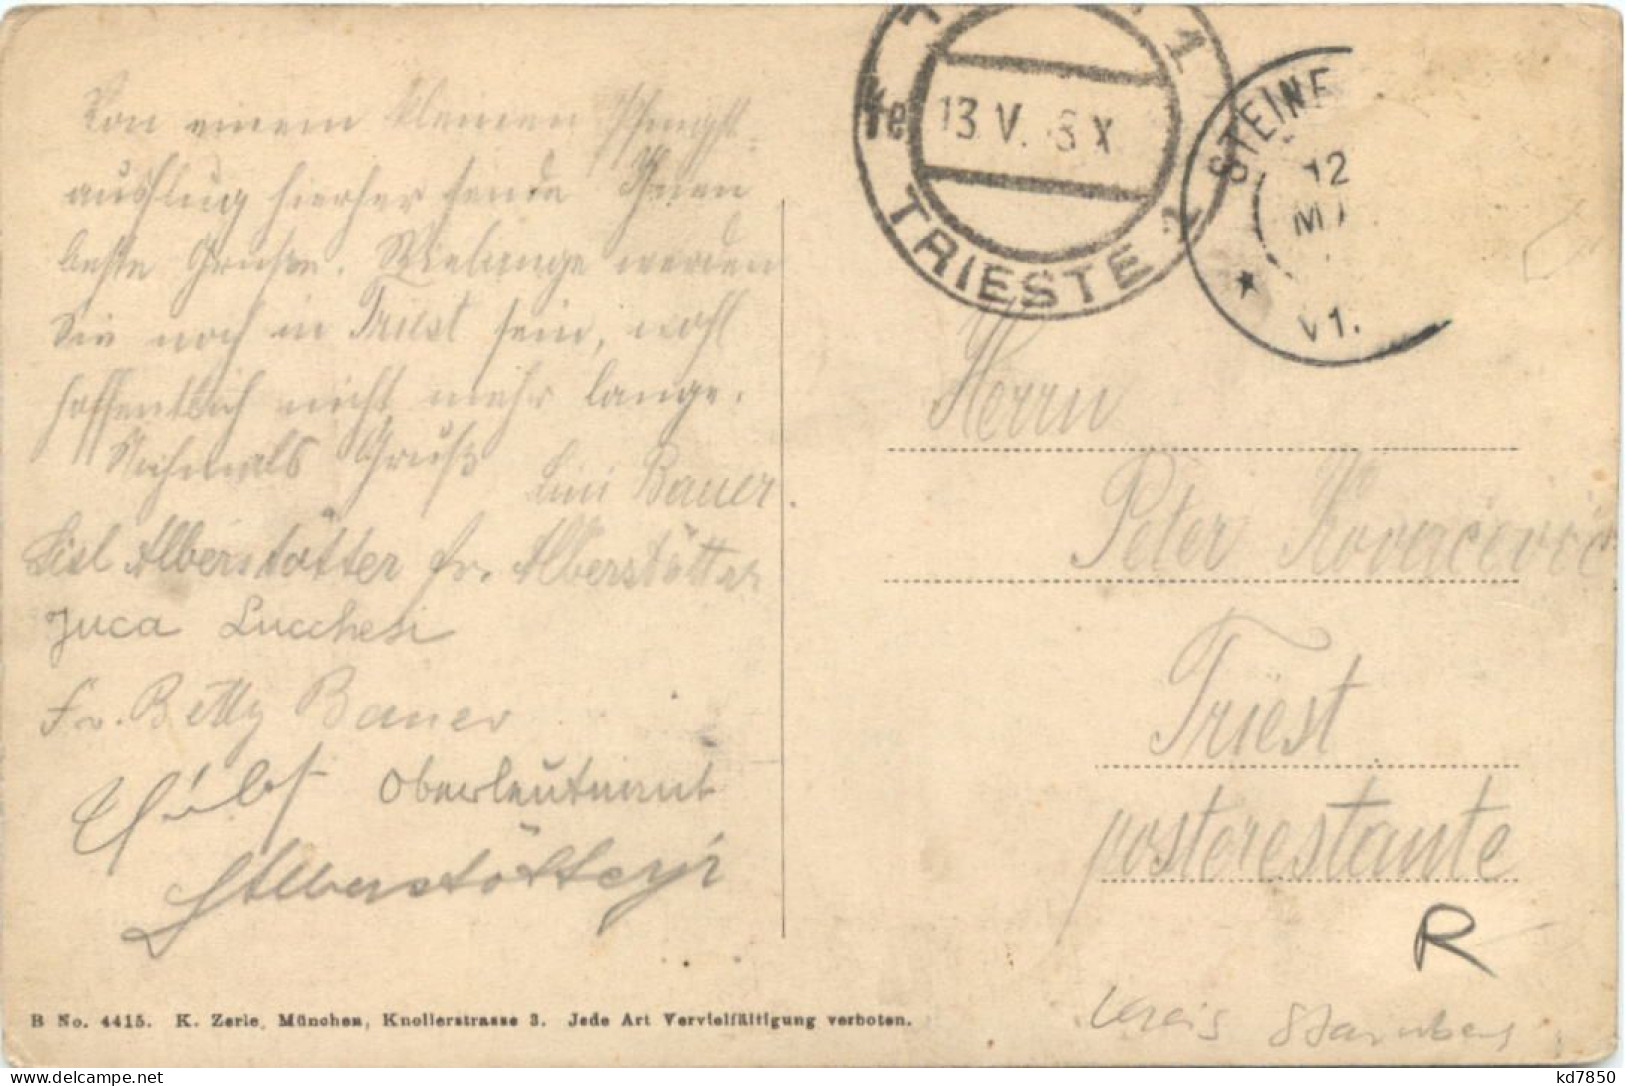 Von einem kleinen Pfingst-
ausflug hierher sende Ihnen
beste Grüße. Wielange werden
Sie noch in Triest sein, wohl
hoffentlich nicht mehr lange.
Nochmals Gruß
Lini Bauer.
Lisl Alberstötter Fr. Alberstötter
Juca Lucchesi
Fr. Betty Bauer
Oberleutnant
Alberstötter
B No. 4415. K. Zerle, München, Knollerstrasse 3. Jede Art Vervielfältigung verboten.
1
13 V. 8 X
TRIESTE 1
STEINE
12
MA
V1.
Herrn
Peter Kovačević
Triest
posterestante
R
Kreis Starnberg
kd7850